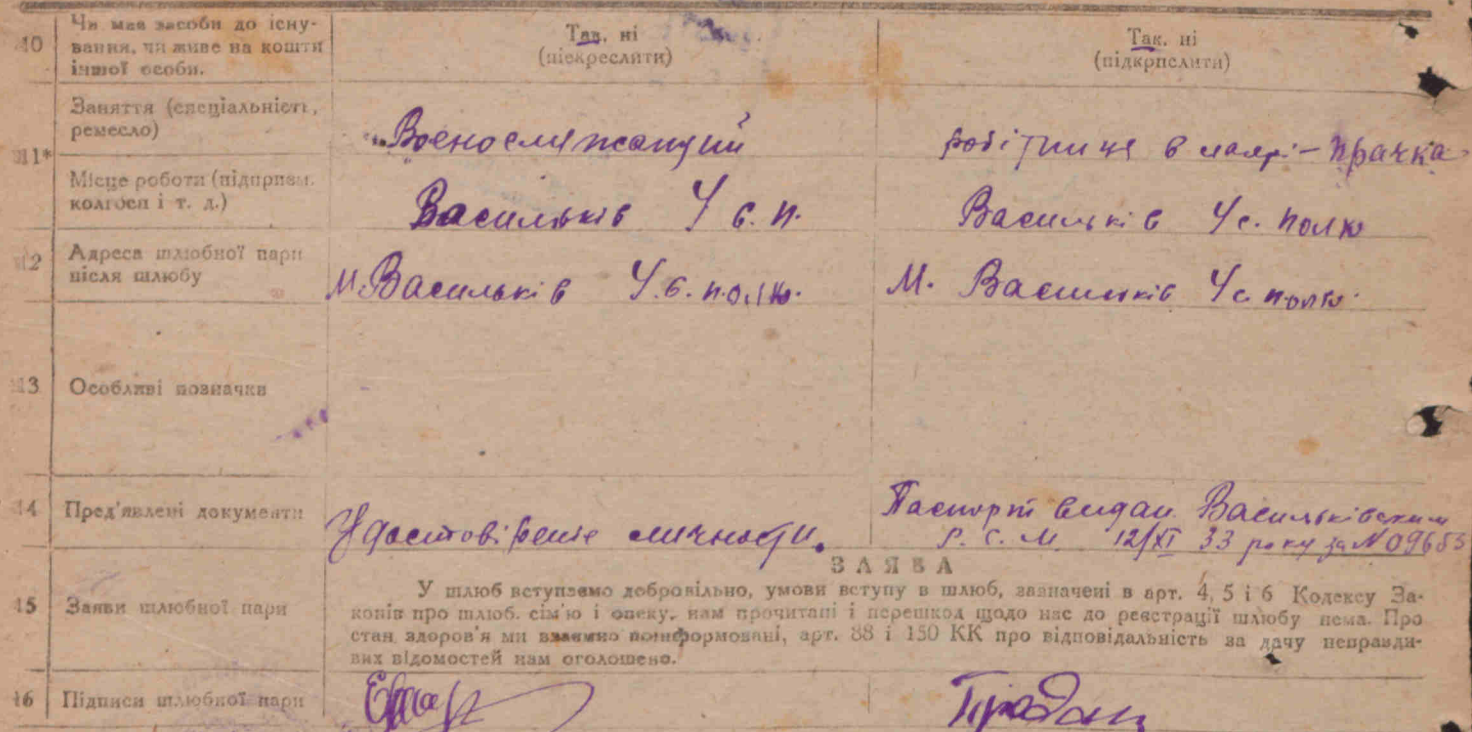 10
Чи має засоби до існу-
вання, чи живе на кошти
іншої особи.
Так, ні
(підкреслити)
Так, ні
(підкрпслити)
11*
Заняття (спеціальність,
ремесло)
Военослужащий
робітниця в – прачка
Місце роботи (підприєм.
колгосп і т. д.)
Васильків У в. п.
Васильків У с. полю
12
Адреса шлюбної пари
після шлюбу
М. Васильків У. в. полю.
М. Васильків У с полю.
13
Особливі позначки
14
Пред'явлені документи
Удостовірение личности.
Паспорт видан Васильківским
Р. С. М. 12/XI 33 року за № 09653
ЗАЯВА
15
Заяви шлюбної пари
У шлюб вступаємо добровільно, умови вступу в шлюб, зазначені в арт. 4, 5 і 6 Кодексу За-
конів про шлюб. сім'ю і опеку, нам прочитані і перешкод щодо нас до реєстрації шлюбу нема. Про
стан здоров'я ми взаємно поінформовані, арт. 88 і 150 КК про відповідальність за дачу неправди-
вих відомостей нам оголошено.
16
Підписи шлюбної пари